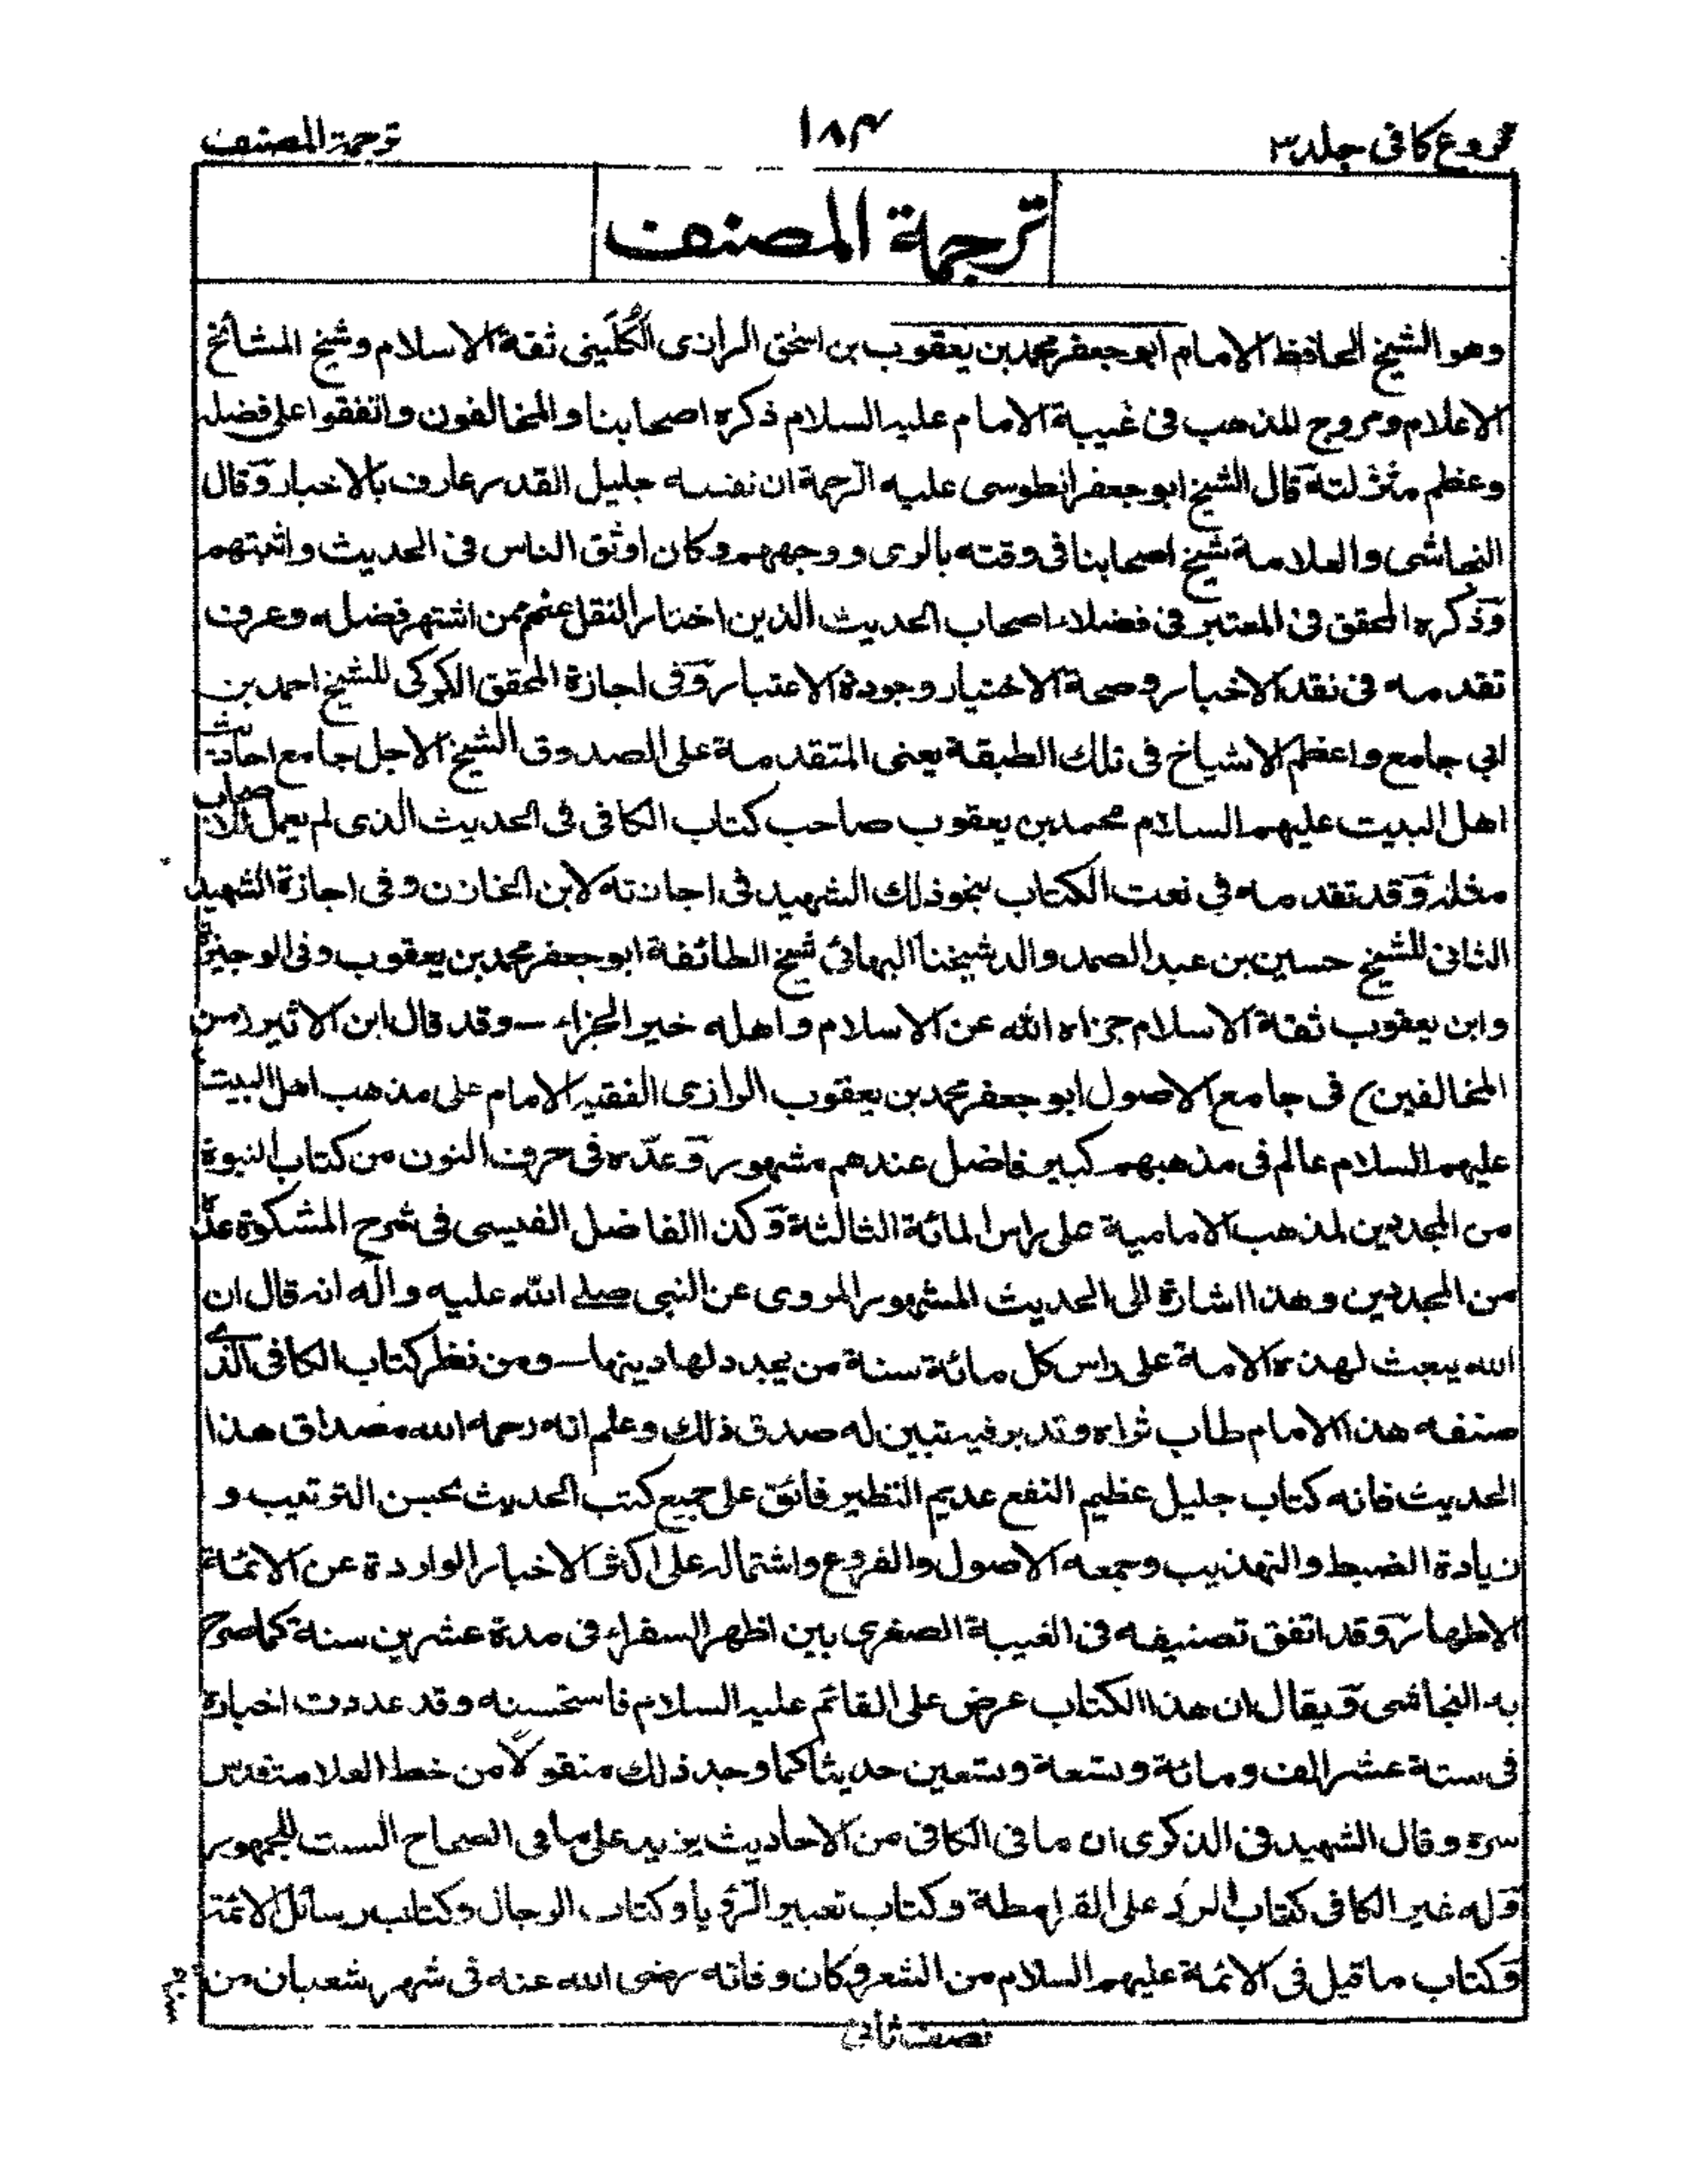 فروع کافی جلد۳
۱۸۴
ترجمة المصنف
ترجمة المصنف
وهو الشيخ الحافظ الامام ابو جعفر محمد بن يعقوب بن اسحٰق الرازى الكُلَينى ثقة الاسلام وشيخ المشائخ
الاعلام ومروج المذهب فى غيبة الامام عليه السلام ذكره اصحابنا والمخالفون واتفقوا على فضله
وعظم منزلته قال الشيخ ابو جعفر الطوسى عليه الرحمة ان نفسه جليل القدر عارف بالاخبار وقال
النجاشى والعلامة شيخ اصحابنا فى وقته بالرى ووجههم وكان اوثق الناس فى الحديث واثبتهم
وذكره المحقق فى المعتبر فى فضلاء اصحاب الحديث الذين اختار النقل عنهم ممن اشتهر فضله وعرف
تقدمه فى نقد الاخبار وصحة الاختيار وجودة الاعتبار وفى اجازة المحقق الكركى للشيخ احمد بن
ابي جامع واعظم الاشياخ فى تلك الطبقة يعنى المتقدمة على الصدوق الشيخ الاجل جامع احاديث
اهل البيت عليهم السلام محمد بن يعقوب صاحب كتاب الكافى فى الحديث الذى لم يعمل الاصحاب
مثله وقد تقدمه فى نعت الكتاب بنحو ذلك الشهيد فى اجازته لابن الخازن وفى اجازة الشهيد
الثانى للشيخ حسين بن عبد الصمد والد شيخنا البهائى شيخ الطائفة ابو جعفر محمد بن يعقوب وفى الوجيزة
وابن يعقوب ثقة الاسلام جزاه الله عن الاسلام واهله خير الجزاء – وقد قال ابن الاثير (من
المخالفين) فى جامع الاصول ابو جعفر محمد بن يعقوب الرازى الفقيه الامام على مذهب اهل البيت
عليهم السلام عالم فى مذهبهم كبير فاضل عندهم مشهور وعدّه فى حرف النون من كتاب النبوة
من المجددين لمذهب الامامية على راس المائة الثالثة وكذا الفاضل الفيسى فى شرح المشكوة عدّه
من المجددين وهذا اشارة الى الحديث المشهور المروى عن النبى صلے الله عليه واله انه قال ان
الله يبعث لهذه الامة على راس كل مائة سنة من يجدد لها دينها – ومن نظر كتاب الكافى الذے
صنفه هذا الامام طاب ثراه وتدبر فيه تبين له صدق ذلك وعلم انه رحمه الله مصداق هذا
الحديث فانه كتاب جليل عظيم النفع عديم النظير فائق على جميع كتب الحديث بحسن الترتيب و
زيادة الضبط والتهذيب وجمعه الاصول والفروع واشتماله على اكثر الاخبار الواردة عن الائمة
الاطهار وقد اتفق تصنيفه فى الغيبة الصغرى بين اظهر السفراء فى مدة عشرين سنة كما صرح
به النجاشى ويقال ان هذا الكتاب عرض على القائم عليه السلام فاستحسنه وقد عددت اخباره
فى ستة عشر الف ومائة وتسعة وتسعين حديثا كما وجد ذلك منقولًا من خط العلامة قدس
سره وقال الشهيد فى الذكرى ان ما فى الكافى من الاحاديث يزيد على ما فى الصحاح الست للجمهور
وله غير الكافى كتاب الرد على القرامطة وكتاب تعبير الرؤيا وكتاب الرجال وكتاب رسائل الائمة
وكتاب ما قيل فى الائمة عليهم السلام من الشعر وكان وفاته رضى الله عنه فى شهر شعبان من
نصف ثانى